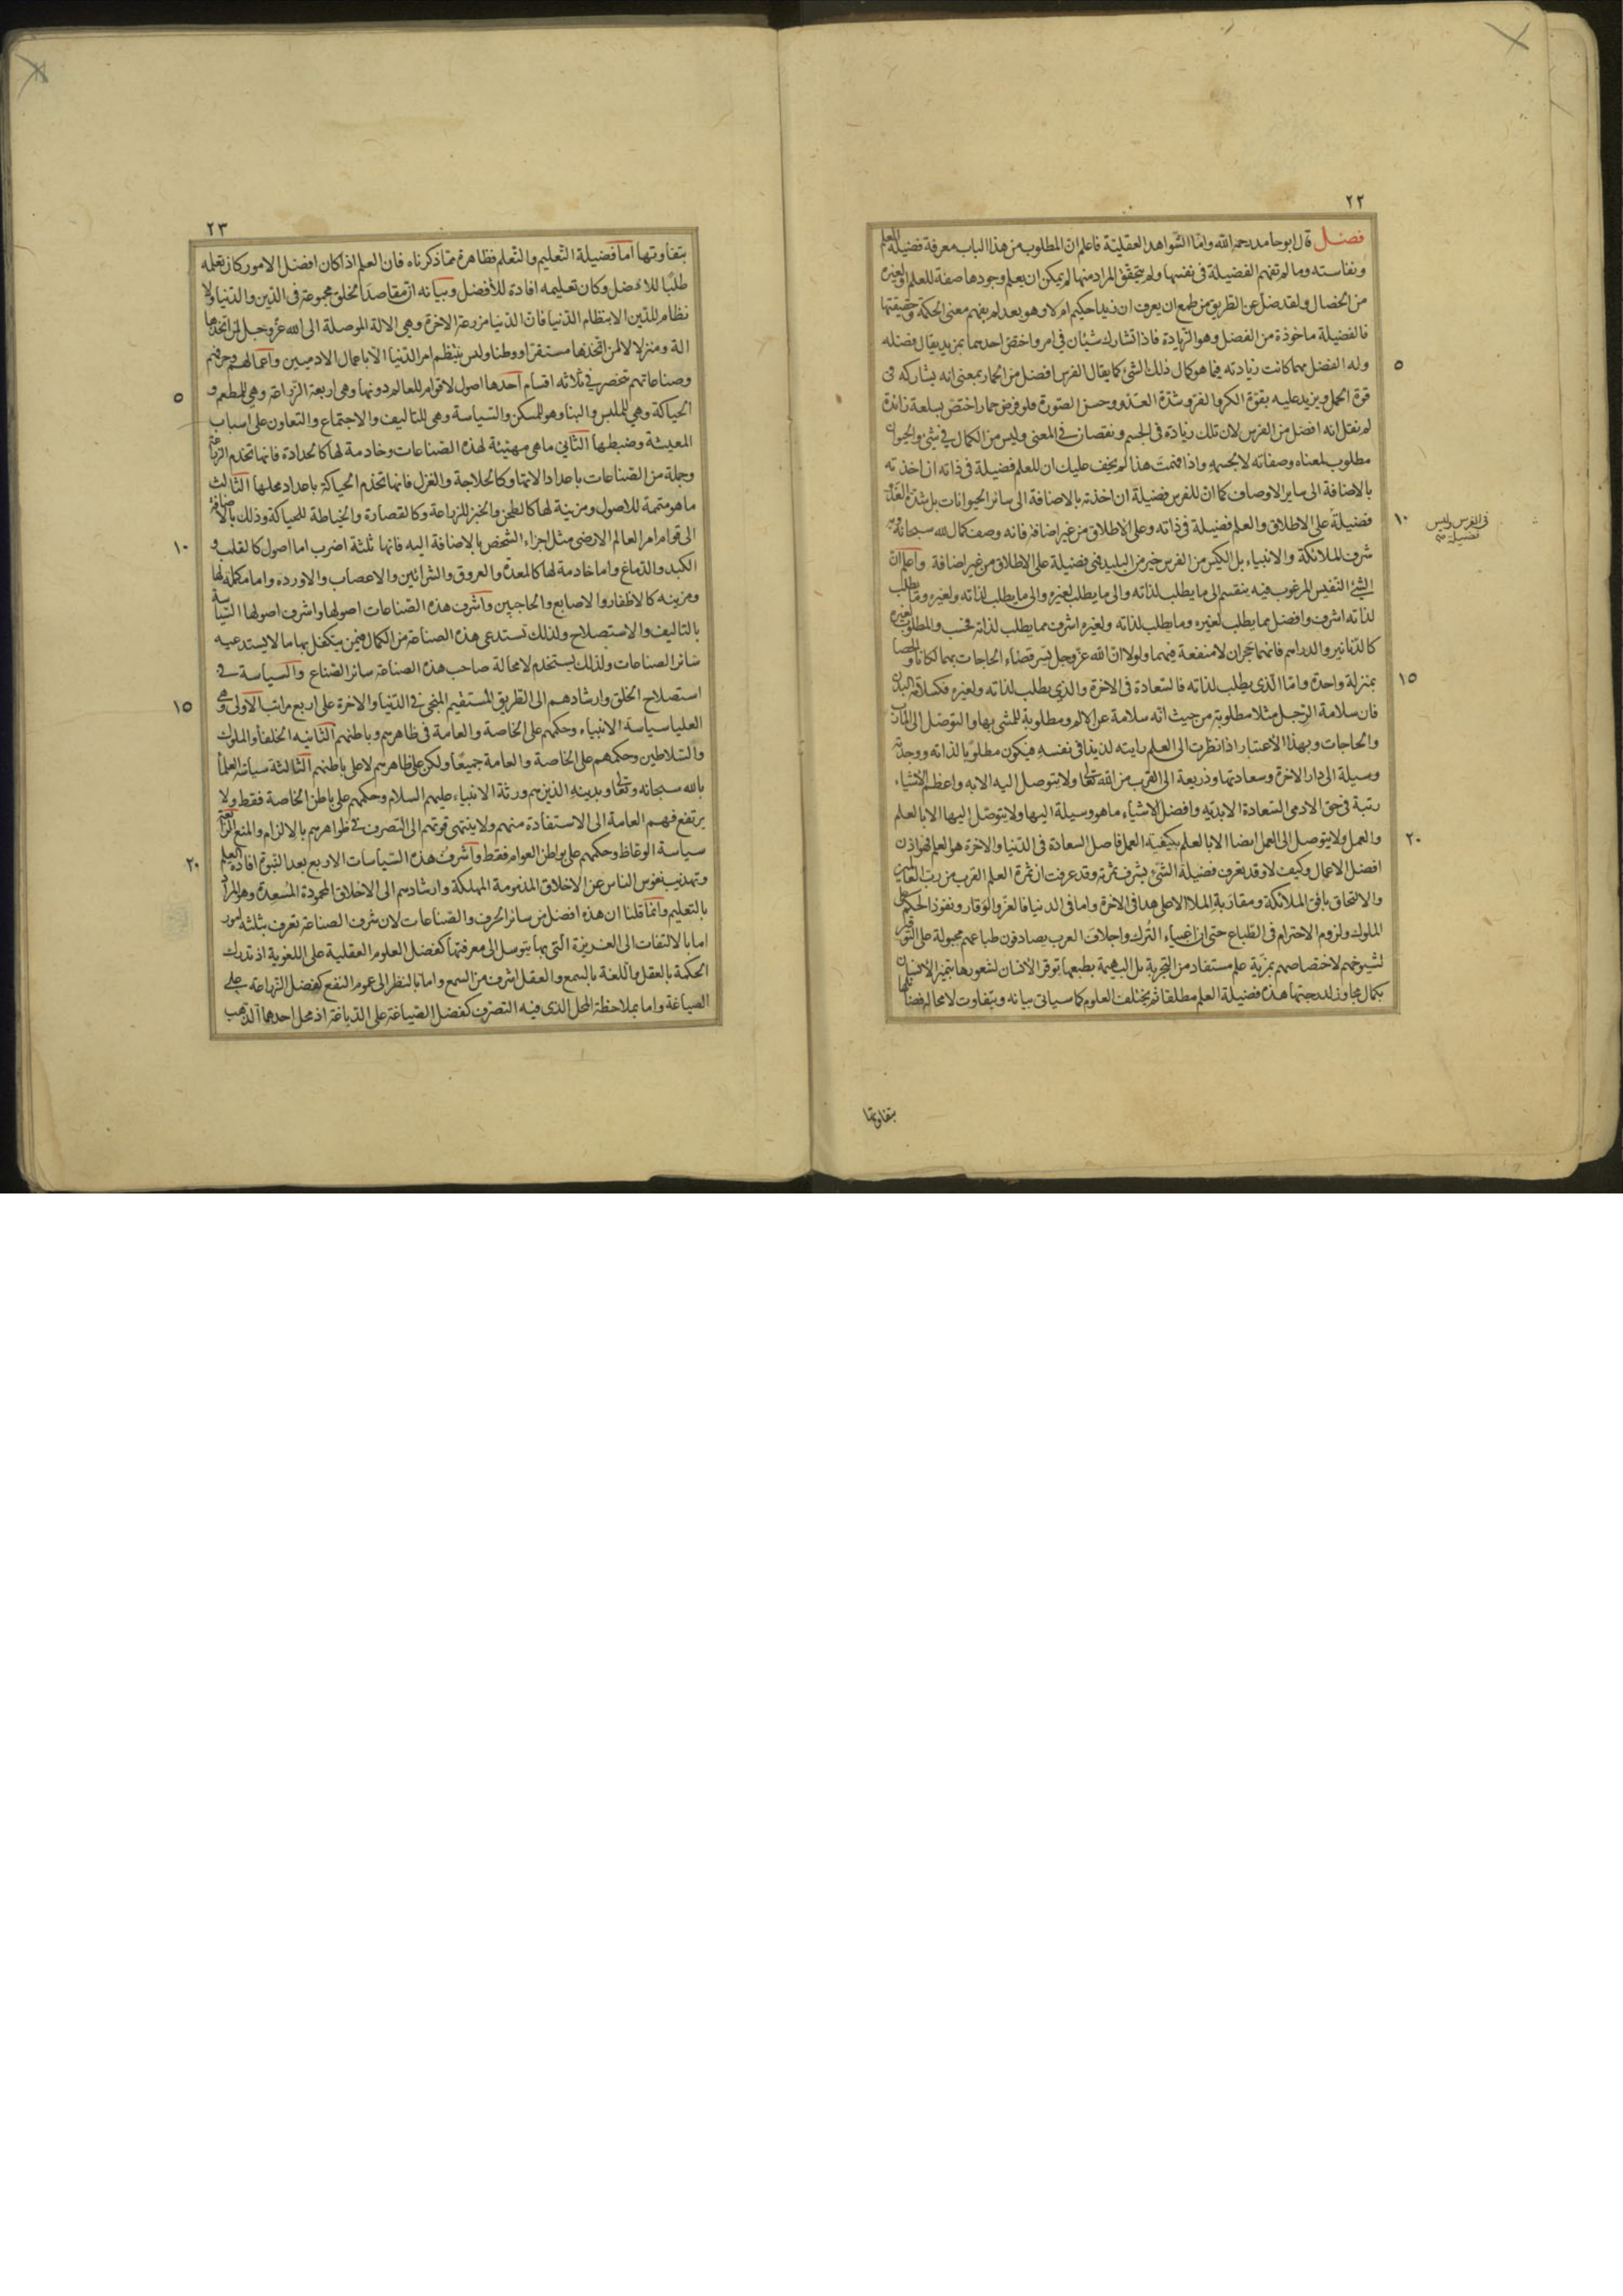 ٢٢
فصل قال ابو حامد رحمه الله واما الشواهد العقلية فاعلم ان المطلوب من هذا الباب معرفة فضيلة العلم
ونفاسته وما لم تفهم الفضيلة فى نفسها ولم يتحقق المراد منها لم يمكن ان يعلم وجودها صفة للعلم او لغيره
من الخصال ولقد ضل عن الطريق من طمع ان يعرف ان زيدا حكيم ام لا وهو بعد لم يفهم معنى الحكمة وحقيقتها
فالفضيلة ماخوذة من الفضل وهو الزيادة فاذا تشارك شيئان فى امر واختص احدهما بمزيد يقال فضله
وله الفضل مهما كانت زيادته فيما هو كمال ذلك الشئ كما يقال الفرس افضل من الحمار بمعنى انه يشاركه فى
٥
قوة الحمل ويزيد عليه بقوة الكر والفر وشدة العدو وحسن الصورة فلو فرض حمار اختص بسلعة زائدة
لم نقل انه افضل من الفرس لان تلك زيادة فى الجسم ونقصان فى المعنى وليس من الكمال فى شئ والحيوان
مطلوب لمعناه وصفاته لا لجسمه واذا فهمت هذا لم يخف عليك ان للعلم فضيلة فى ذاته ان اخذته
بالاضافة الى ساير الاوصاف كما ان للفرس فضيلة ان اخذته بالاضافة الى سائر الحيوانات بل شدة العدو
فضيلة على الاطلاق والعلم فضيلة فى ذاته وعلى الاطلاق من غير اضافة فانه وصف كمال الله سبحانه وبه
١٠
فى الفرس وليس
فضيلة
شرف الملائكة والانبياء بل الكيس من الفرس خير من البليد فهى فضيلة على الاطلاق من غير اضافة واعلم ان
الشئ النفيس المرغوب فيه ينقسم الى ما يطلب لذاته والى ما يطلب لغيره والى ما يطلب لذاته ولغيره وما يطلب
لذاته اشرف وافضل مما يطلب لغيره وما يطلب لذاته ولغيره اشرف مما يطلب لذاته فحسب والمطلوب لغيره
كالدنانير والدراهم فانهما حجران لا منفعة فيهما ولولا ان الله عز وجل يسر قضاء الحاجات بهما لكانا والحصا
بمنزلة واحدة واما الذى يطلب لذاته فالسعادة فى الاخرة والذى يطلب لذاته ولغيره فكسلامة البدن
١٥
فان سلامة الرجل مثلا مطلوبة من حيث انه سلامة عن الالم ومطلوبة للمشى بها والتوصل الى المآرب
والحاجات وبهذا الاعتبار اذا نظرت الى العلم رايته لذيذا فى نفسه فيكون مطلوبا لذاته ووجدته
وسيلة الى دار الاخرة وسعادتها وذريعة الى القرب من الله تعالى ولا يتوصل اليه الا به واعظم الاشياء
رتبة فى حق الادمى السعادة الابدية وافضل الاشياء ما هو وسيلة اليها ولا يتوصل اليها الا بالعلم
والعمل ولا يتوصل الى العمل ايضا الا بالعلم بكيفية العمل فاصل السعادة فى الدنيا والاخرة هو العلم فهو اذن
٢٠
افضل الاعمال وكيف لا وقد تعرف فضيلة الشئ بشرف ثمرته وقد عرفت ان ثمرة العلم القرب من رب العالمين
والالتحاق بافق الملائكة ومقاربة الملا الاعلى هذا فى الاخرة واما فى الدنيا فالعز والوقار ونفوذ الحكم على
الملوك ولزوم الاحترام فى الطباع حتى ان اغبياء الترك واجلاف العرب يصادفون طباعهم مجبولة على التوقير
لشيوخهم لاختصاصهم بمزية علم مستفاد من التجربة بل البهيمة بطبعها توقر الانسان لشعورها بتميز الانسان
بكمال مجاوز لدرجتها هذه فضيلة العلم مطلقا ثم يختلف العلوم كما سياتى بيانه ويتفاوت لا محالة فضائلها
بتفاوتها
٢٣
بتفاوتها اما فضيلة التعليم والتعلم فظاهرة مما ذكرناه فان العلم اذا كان افضل الامور كان تعلمه
طلبا للافضل وكان تعليمه افادة للافضل وبيانه ان مقاصد الخلق مجموعة فى الدين والدنيا ولا
نظام للدين الا بنظام الدنيا فان الدنيا مزرعة الاخرة وهى الالة الموصلة الى الله عز وجل لمن اتخذها
الة ومنزلا لا لمن اتخذها مستقرا ووطنا وليس ينتظم امر الدنيا الا باعمال الادميين واعمالهم وحرفهم
وصناعاتهم تنحصر فى ثلاثة اقسام احدها اصول لا قوام للعالم دونها وهى اربعة الزراعة وهى للمطعم و
٥
الحياكة وهى للملبس والبنا وهو للمسكن والسياسة وهى للتاليف والاجتماع والتعاون على اسباب
المعيشة وضبطها الثانى ما هى مهيئة لهذه الصناعات وخادمة لها كالحدادة فانها تخدم الزراعة
وجملة من الصناعات باعداد الاتها وكالحلاجة والغزل فانها تخدم الحياكة باعداد محلها الثالث
ما هو متممة للاصول ومزينة لها كالطحن والخبز للزراعة وكالقصارة والخياطة للحياكة وذلك بالاضافة
الى قوام امر العالم الارضى مثل اجزاء الشخص بالاضافة اليه فانها ثلثة اضرب اما اصول كالقلب و
١٠
الكبد والدماغ واما خادمة لها كالمعدة والعروق والشرائين والاعصاب والاوردة واما مكملة لها
ومزينة كالاظفار والاصابع والحاجبين واشرف هذه الصناعات اصولها واشرف اصولها السياسة
بالتاليف والاستصلاح ولذلك تستدعى هذه الصناعة من الكمال فيمن يتكفل بها ما لا يستدعيه
سائر الصناعات ولذلك يستخدم لا محالة صاحب هذه الصناعة سائر الصناع والسياسة فى
استصلاح الخلق وارشادهم الى الطريق المستقيم المنجى فى الدنيا والاخرة على اربع مراتب الاولى وهى
١٥
العليا سياسة الانبياء وحكمهم على الخاصة والعامة فى ظاهرهم وباطنهم الثانيه الخلفاء والملوك
والسلاطين وحكمهم على الخاصة والعامة جميعا ولكن على ظاهرهم لا على باطنهم الثالثة سياسة العلماء
بالله سبحانه وتعالى وبدينه الذين هم ورثة الانبياء عليهم السلام وحكمهم على باطن الخاصة فقط ولا
يرتفع فهم العامة الى الاستفادة منهم ولا ينتهى قوتهم الى التصرف فى ظواهرهم بالالزام والمنع الرابعة
سياسة الوعاظ وحكمهم على بواطن العوام فقط واشرف هذه السياسات الاربع بعد النبوة افادة العلم
٢٠
وتهذيب نفوس الناس عن الاخلاق المذمومة المهلكة وارشادهم الى الاخلاق المحمودة المسعدة وهو المراد
بالتعليم وانما قلنا ان هذه افضل من سائر الحرف والصناعات لان شرف الصناعة تعرف بثلثة امور
اما بالالتفات الى الغريزة التى بها يتوسل الى معرفتها كفضل العلوم العقلية على اللغوية اذ تدرك
الحكمة بالعقل واللغة بالسمع والعقل اشرف من السمع واما بالنظر الى عموم النفع كفضل الزراعة على
الصياغة واما بملاحظة المحل الذى فيه التصرف كفضل الصياغة على الدباغة اذ محل احدهما الذهب